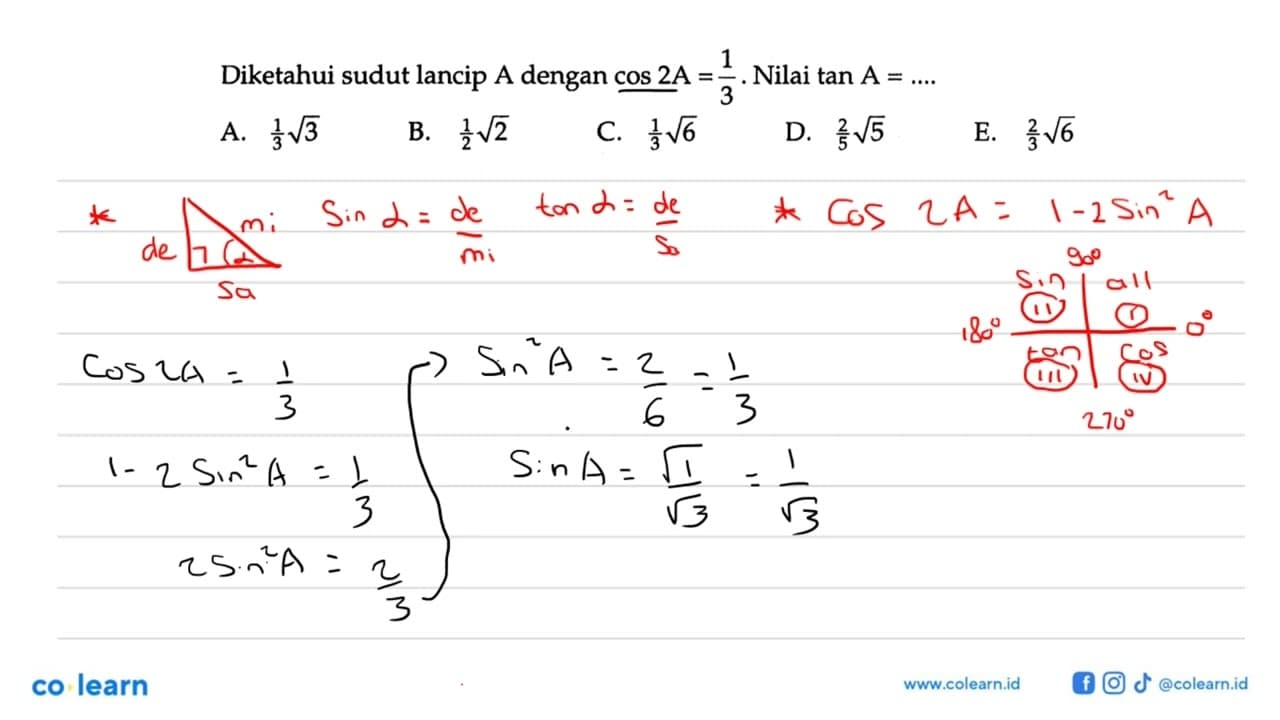 Diketahui sudut lancip A dengan cos 2A = 1/3. Nilai tan A = ....
A. 1/3√3 B. 1/2√2 C. 1/3√6 D. 2/5√5 E. 2/3√6
* de mi sa α Sin α = de/mi tan α = de/sa * Cos 2A = 1 - 2 Sin² A
90°
Sin all
II I
180° 0°
tan Cos
III IV
270°
Cos 2A = 1/3
1 - 2 Sin² A = 1/3
2 Sin² A = 2/3
→ Sin² A = 2/6 = 1/3
Sin A = √1/√3 = 1/√3
co learn
www.colearn.id
@colearn.id